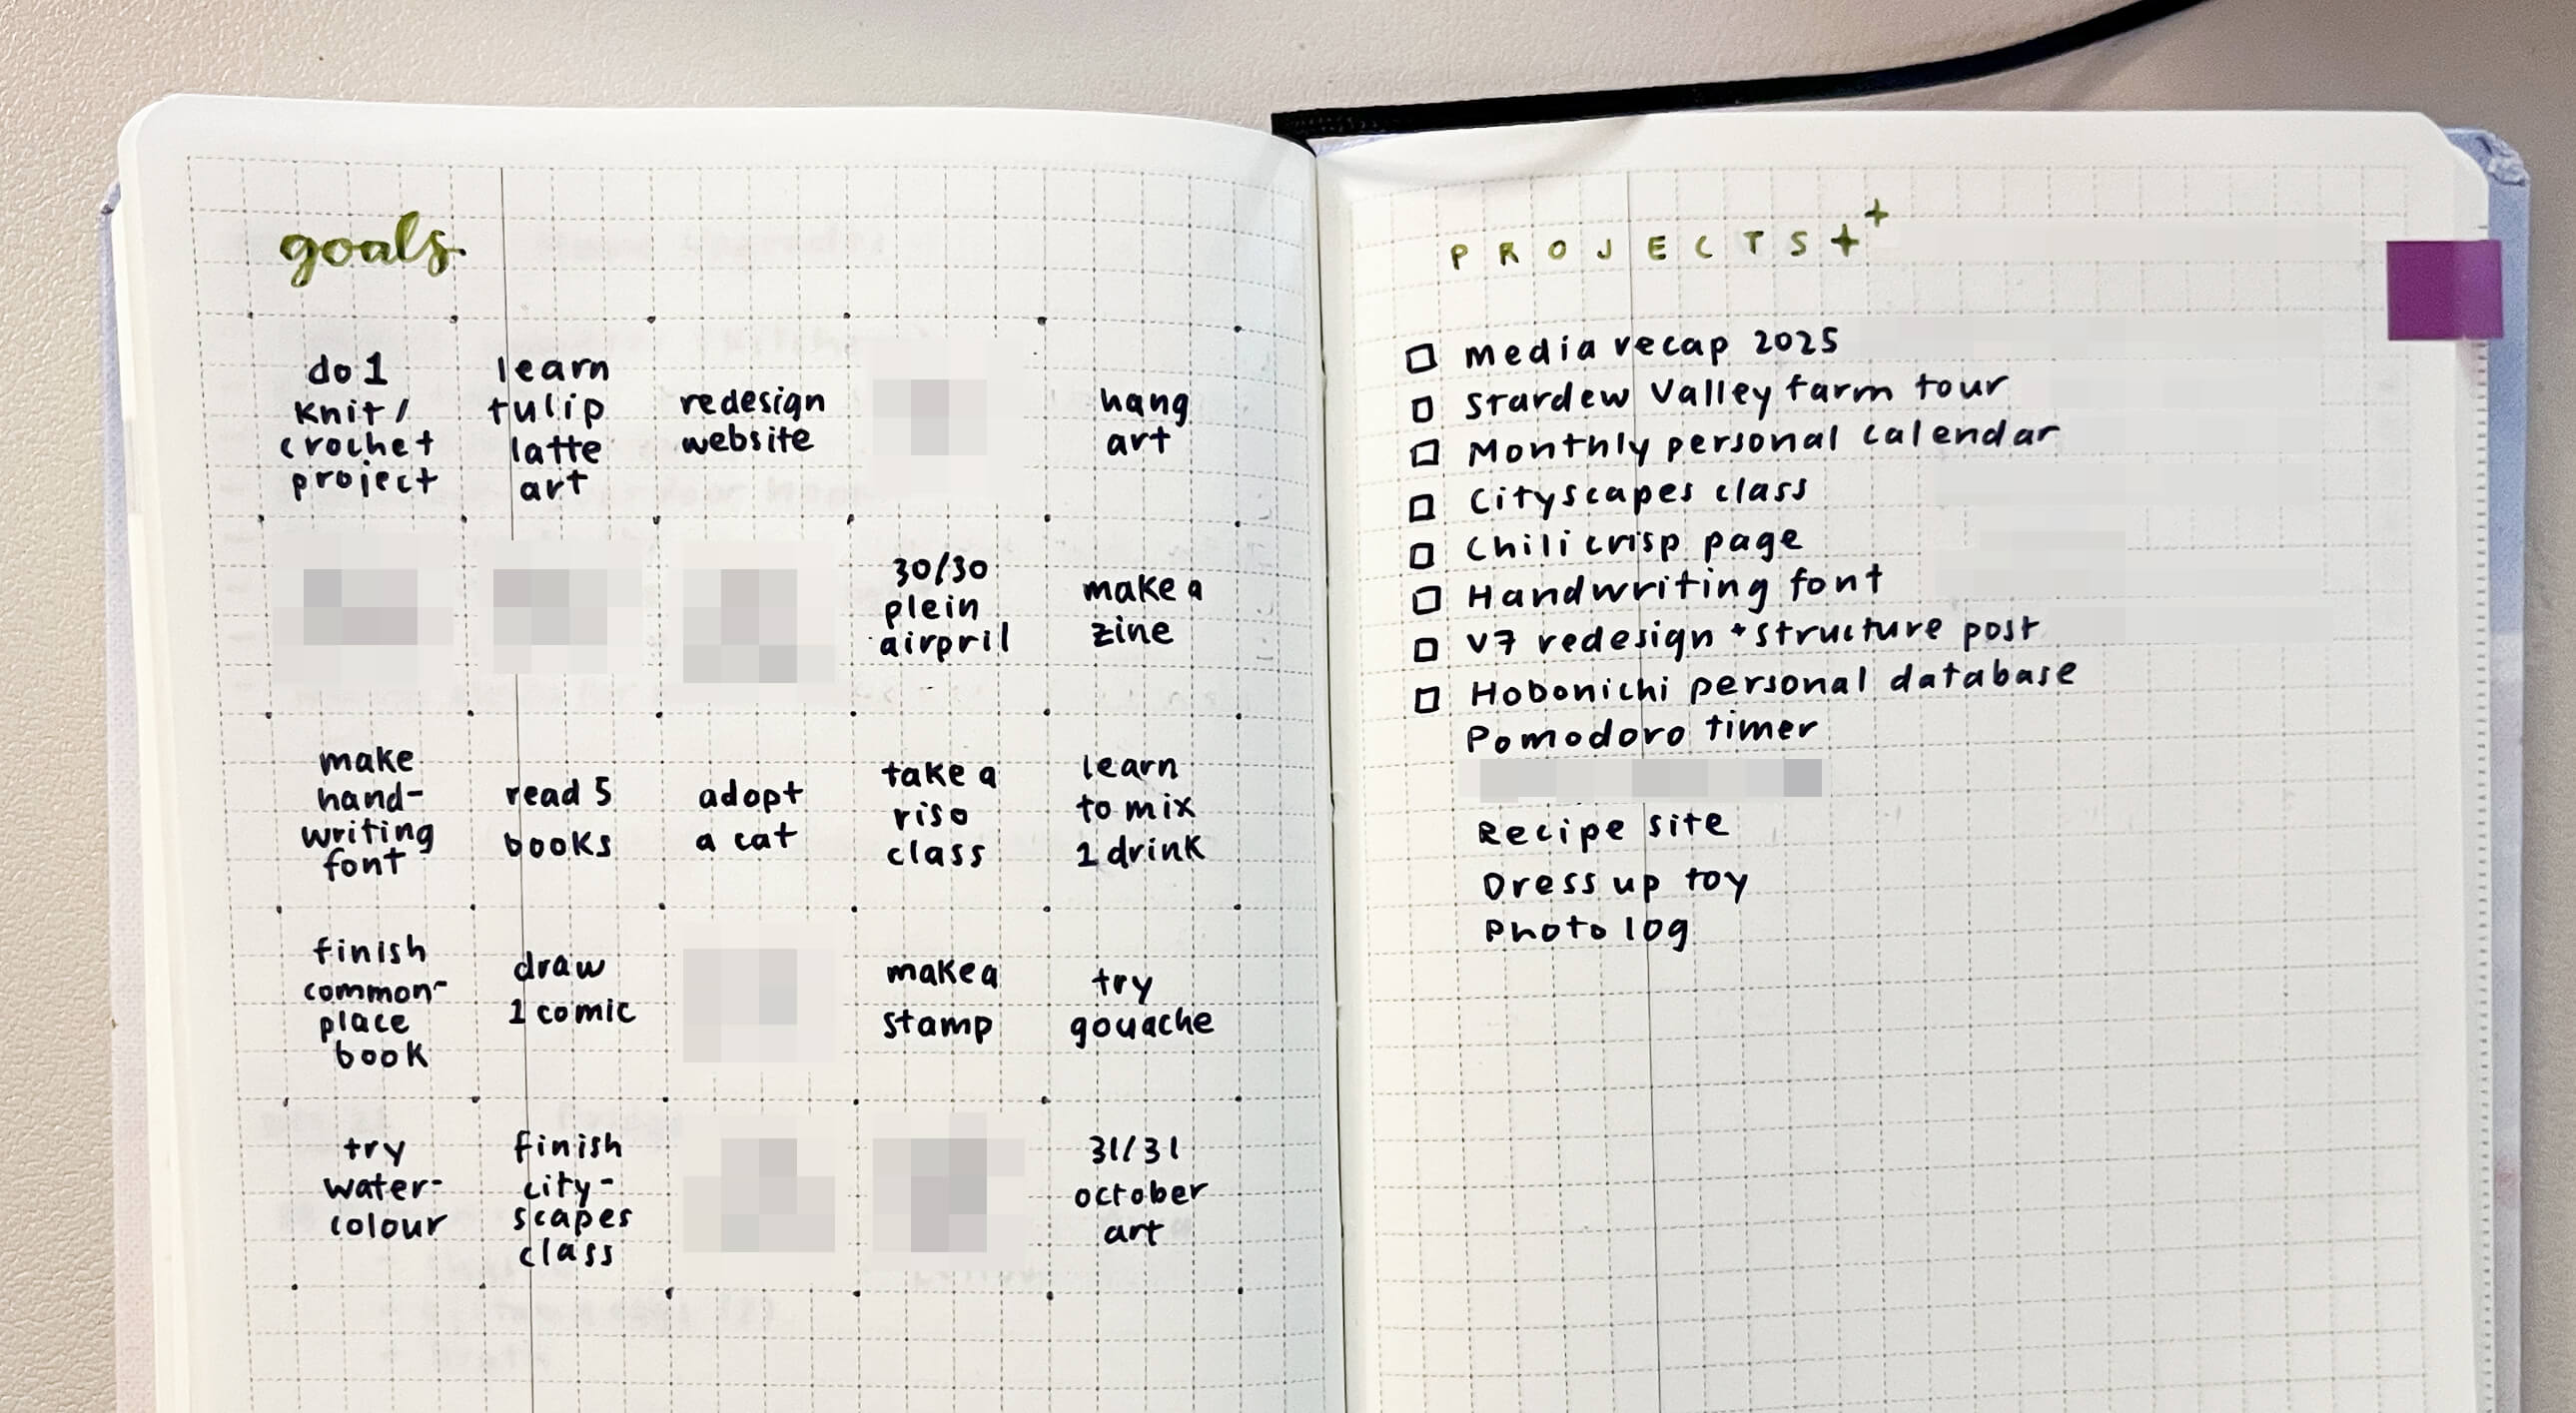 goals
do 1
knit/
crochet
project
learn
tulip
latte
art
redesign
website
hang
art
30/30
plein
airpril
make a
zine
make
hand-
writing
font
read 5
books
adopt
a cat
take a
riso
class
learn
to mix
1 drink
finish
common-
place
book
draw
1 comic
make a
stamp
try
gouache
try
water-
colour
finish
city-
scapes
class
31/31
october
art
PROJECTS
media recap 2025
Stardew Valley farm tour
Monthly personal calendar
Cityscapes class
Chili crisp page
Handwriting font
V7 redesign + structure post
Hobonichi personal database
Pomodoro timer
Recipe site
Dress up toy
Photo log